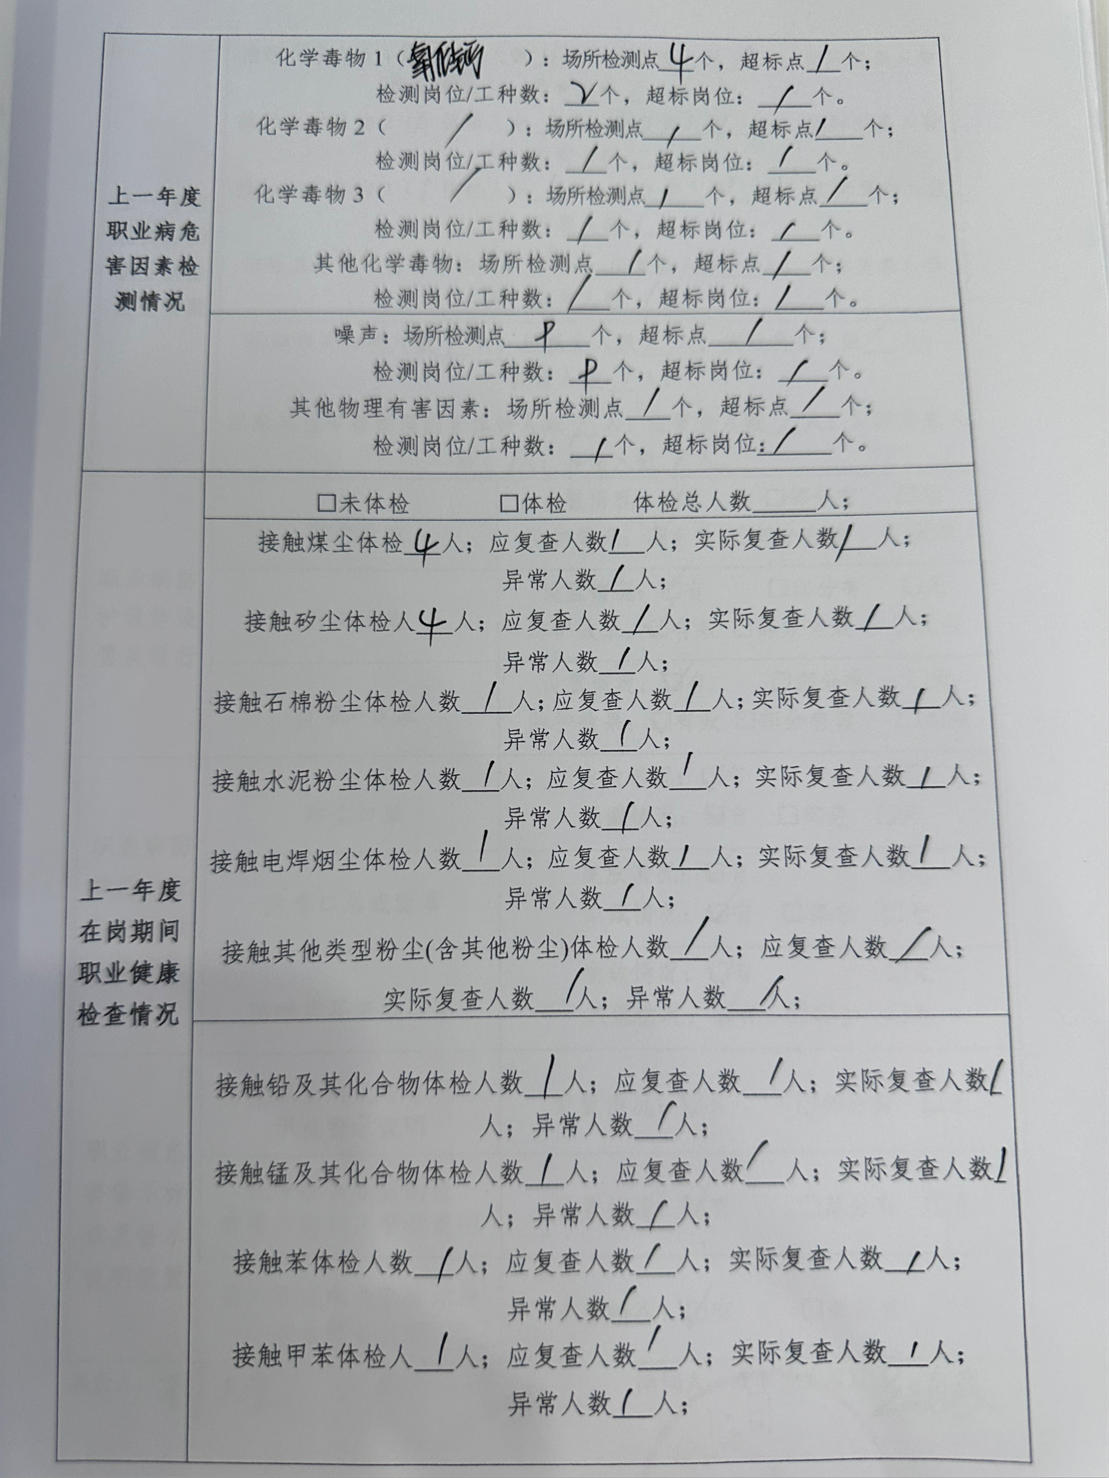 化学毒物1（氧化钙）：场所检测点4个，超标点/个；
检测岗位/工种数：2个，超标岗位：/个。
化学毒物2（/）：场所检测点/个，超标点/个；
检测岗位/工种数：/个，超标岗位：/个。
化学毒物3（/）：场所检测点/个，超标点/个；
检测岗位/工种数：/个，超标岗位：/个。
其他化学毒物：场所检测点/个，超标点/个；
检测岗位/工种数：/个，超标岗位：/个。
上一年度
职业病危
害因素检
测情况
噪声：场所检测点个，超标点/个；
检测岗位/工种数：个，超标岗位：/个。
其他物理有害因素：场所检测点/个，超标点/个；
检测岗位/工种数：/个，超标岗位：/个。
□未体检 □体检 体检总人数____人；
接触煤尘体检4人；应复查人数/人；实际复查人数/人；
异常人数/人；
接触矽尘体检人4人；应复查人数/人；实际复查人数/人；
异常人数/人；
接触石棉粉尘体检人数/人；应复查人数/人；实际复查人数/人；
异常人数/人；
接触水泥粉尘体检人数/人；应复查人数/人；实际复查人数/人；
异常人数/人；
接触电焊烟尘体检人数/人；应复查人数/人；实际复查人数/人；
异常人数/人；
接触其他类型粉尘(含其他粉尘)体检人数/人；应复查人数/人；
实际复查人数/人；异常人数/人；
上一年度
在岗期间
职业健康
检查情况
接触铅及其化合物体检人数/人；应复查人数/人；实际复查人数/
人；异常人数/人；
接触锰及其化合物体检人数/人；应复查人数/人；实际复查人数/
人；异常人数/人；
接触苯体检人数/人；应复查人数/人；实际复查人数/人；
异常人数/人；
接触甲苯体检人/人；应复查人数/人；实际复查人数/人；
异常人数/人；